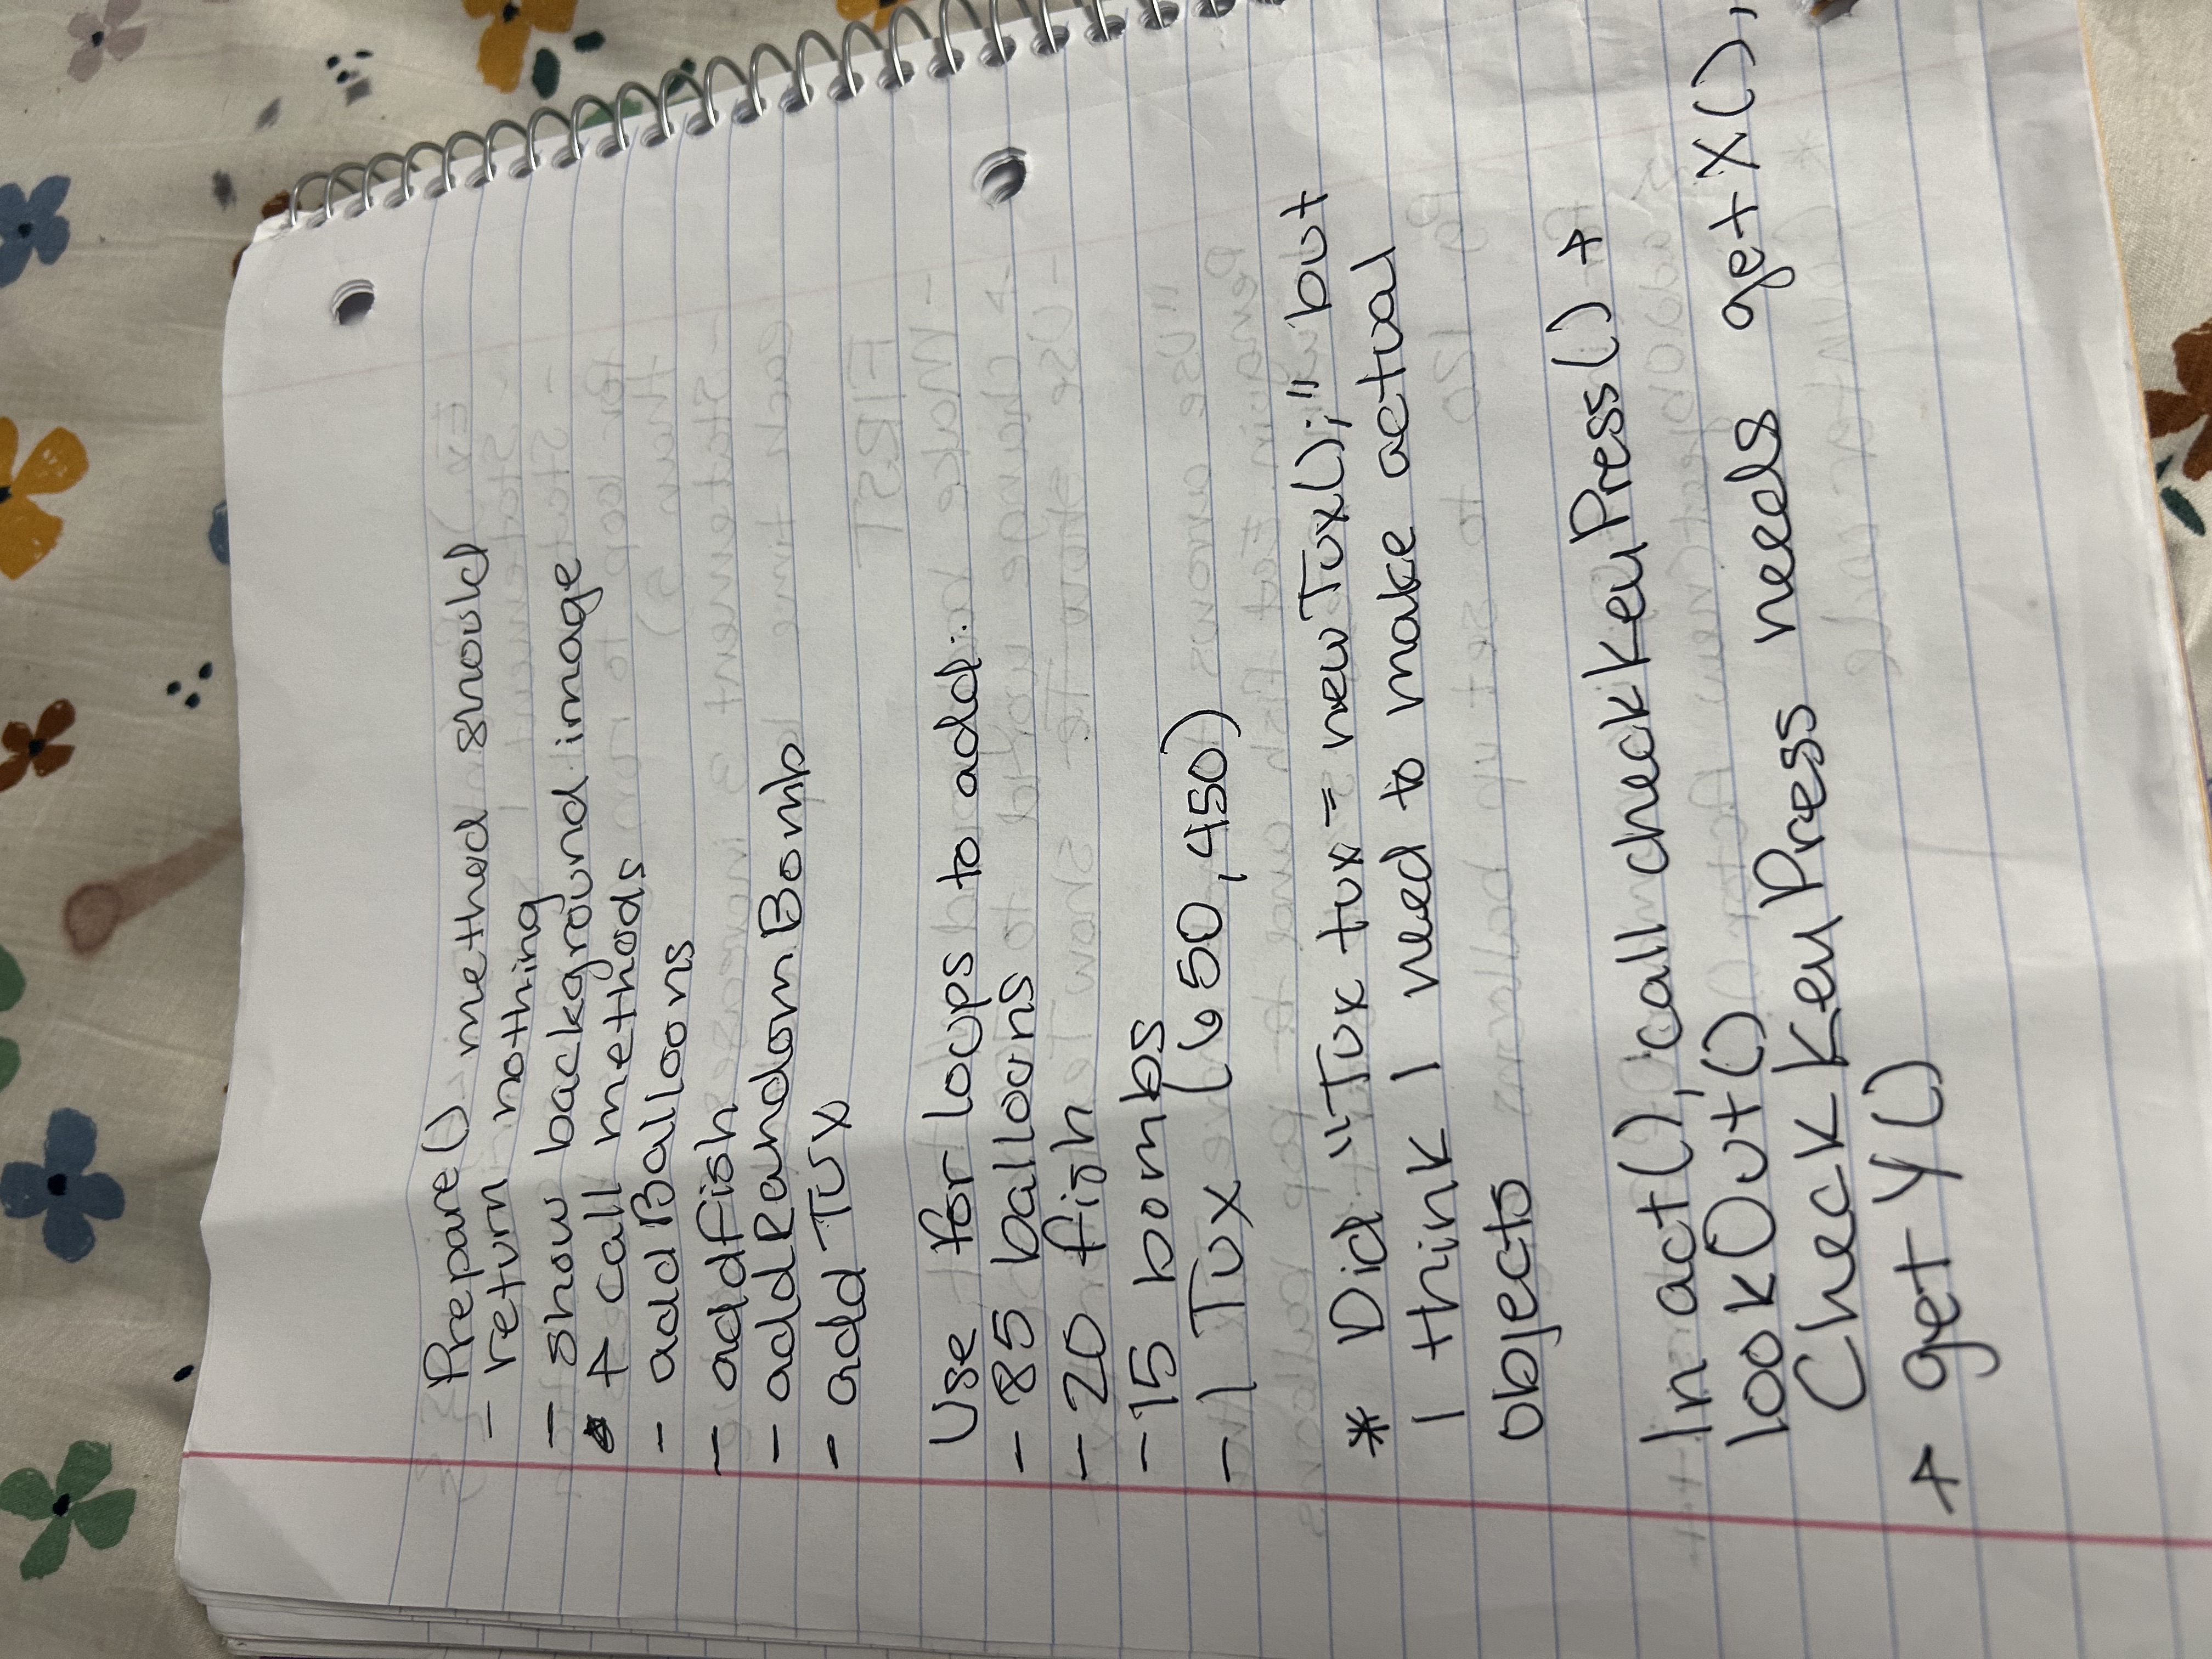 Prepare() method should
- return nothing
- show background image
+ call methods
- addBalloons
- addfish
- addRandomBomb
- add Tux
Use for loops to add:
- 85 balloons
- 20 fish
- 15 bombs
- 1 Tux (650,450)
* Did "Tux tux = new Tux();" but
I think I need to make actual
objects
In act(), call checkKeyPress() +
lookOut()
CheckKeyPress needs getX(),
+ getY()